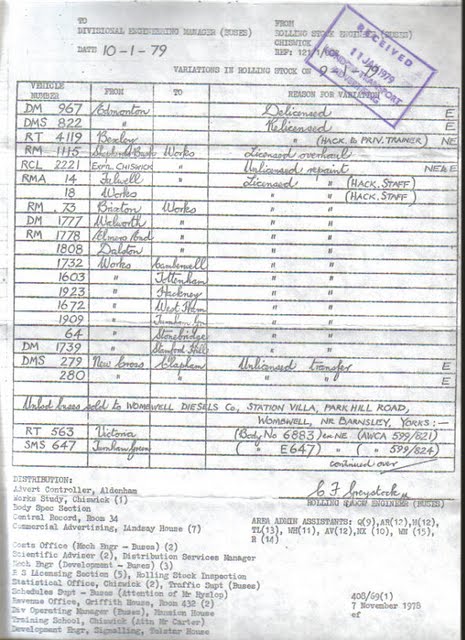 TO FROM
DIVISIONAL ENGINEERING MANAGER (BUSES) ROLLING STOCK ENGINEER (BUSES)
CHISWICK
DATE 10-1-79 REF: 121/1/608
RECEIVED
11 JAN 1979
VARIATIONS IN ROLLING STOCK ON 9 79
VEHICLE NUMBER FROM TO REASON FOR VARIATION
DM 967 Edmonton Delicensed E
DMS 822 " Relicensed E
RT 4119 Bexley " (HACK. to PRIV. TRAINER) NE
RM 1115 Shepherds Bush Works Licensed overhaul
RCL 2221 Exptl. CHISWICK " Unlicensed repaint NE & E
RMA 14 Fulwell " Licensed " (HACK. STAFF)
18 Works " " (HACK. STAFF)
RM 73 Brixton Works " "
DM 1777 Walworth " " "
RM 1778 Elmers End " " "
1808 Dalston " " "
1732 Works Camberwell " "
1603 " Tottenham " "
1923 " Hackney " "
1672 " West Ham " "
1909 " Turnham Gn " "
64 " Stonebridge " "
DM 1739 " Stamford Hill " "
DMS 279 New Cross Clapham Unlicensed transfer E
280 " " " " E
Unlcsd buses sold to WOMBWELL DIESELS Co, STATION VILLA, PARK HILL ROAD,
WOMBWELL, NR BARNSLEY, YORKS :-
RT 563 Victoria (Body No 6883) ex NE (AWCA 599/821)
SMS 647 Turnham Green ( " E647) " ( " 599/824)
continued over
DISTRIBUTION:
Advert Controller, Aldenham
Works Study, Chiswick (1)
Body Spec Section
Central Record, Room 34
Commercial Advertising, Lindsay House (7)
ROLLING STOCK ENGINEER (BUSES)
AREA ADMIN ASSISTANTS: Q(9), AR(12), M(12),
TL(13), WH(11), AV(12), NX (10), WN (15),
B (14)
Costs Office (Mech Engr - Buses) (2)
Scientific Adviser (2), Distribution Services Manager
Mech Engr (Development - Buses) (3)
R S Licensing Section (5), Rolling Stock Inspection
Statistical Office, Chiswick (2), Traffic Supt (Buses)
Schedules Dupt - Buses (Attention of Mr Hyslop)
Revenue Office, Griffith House, Room 432 (2)
Div Operating Manager (Buses), Mansion House
Training School, Chiswick (Attn Mr Carter)
Development Engr, Signalling, Telstar House
408/69(1)
7 November 1978
ef